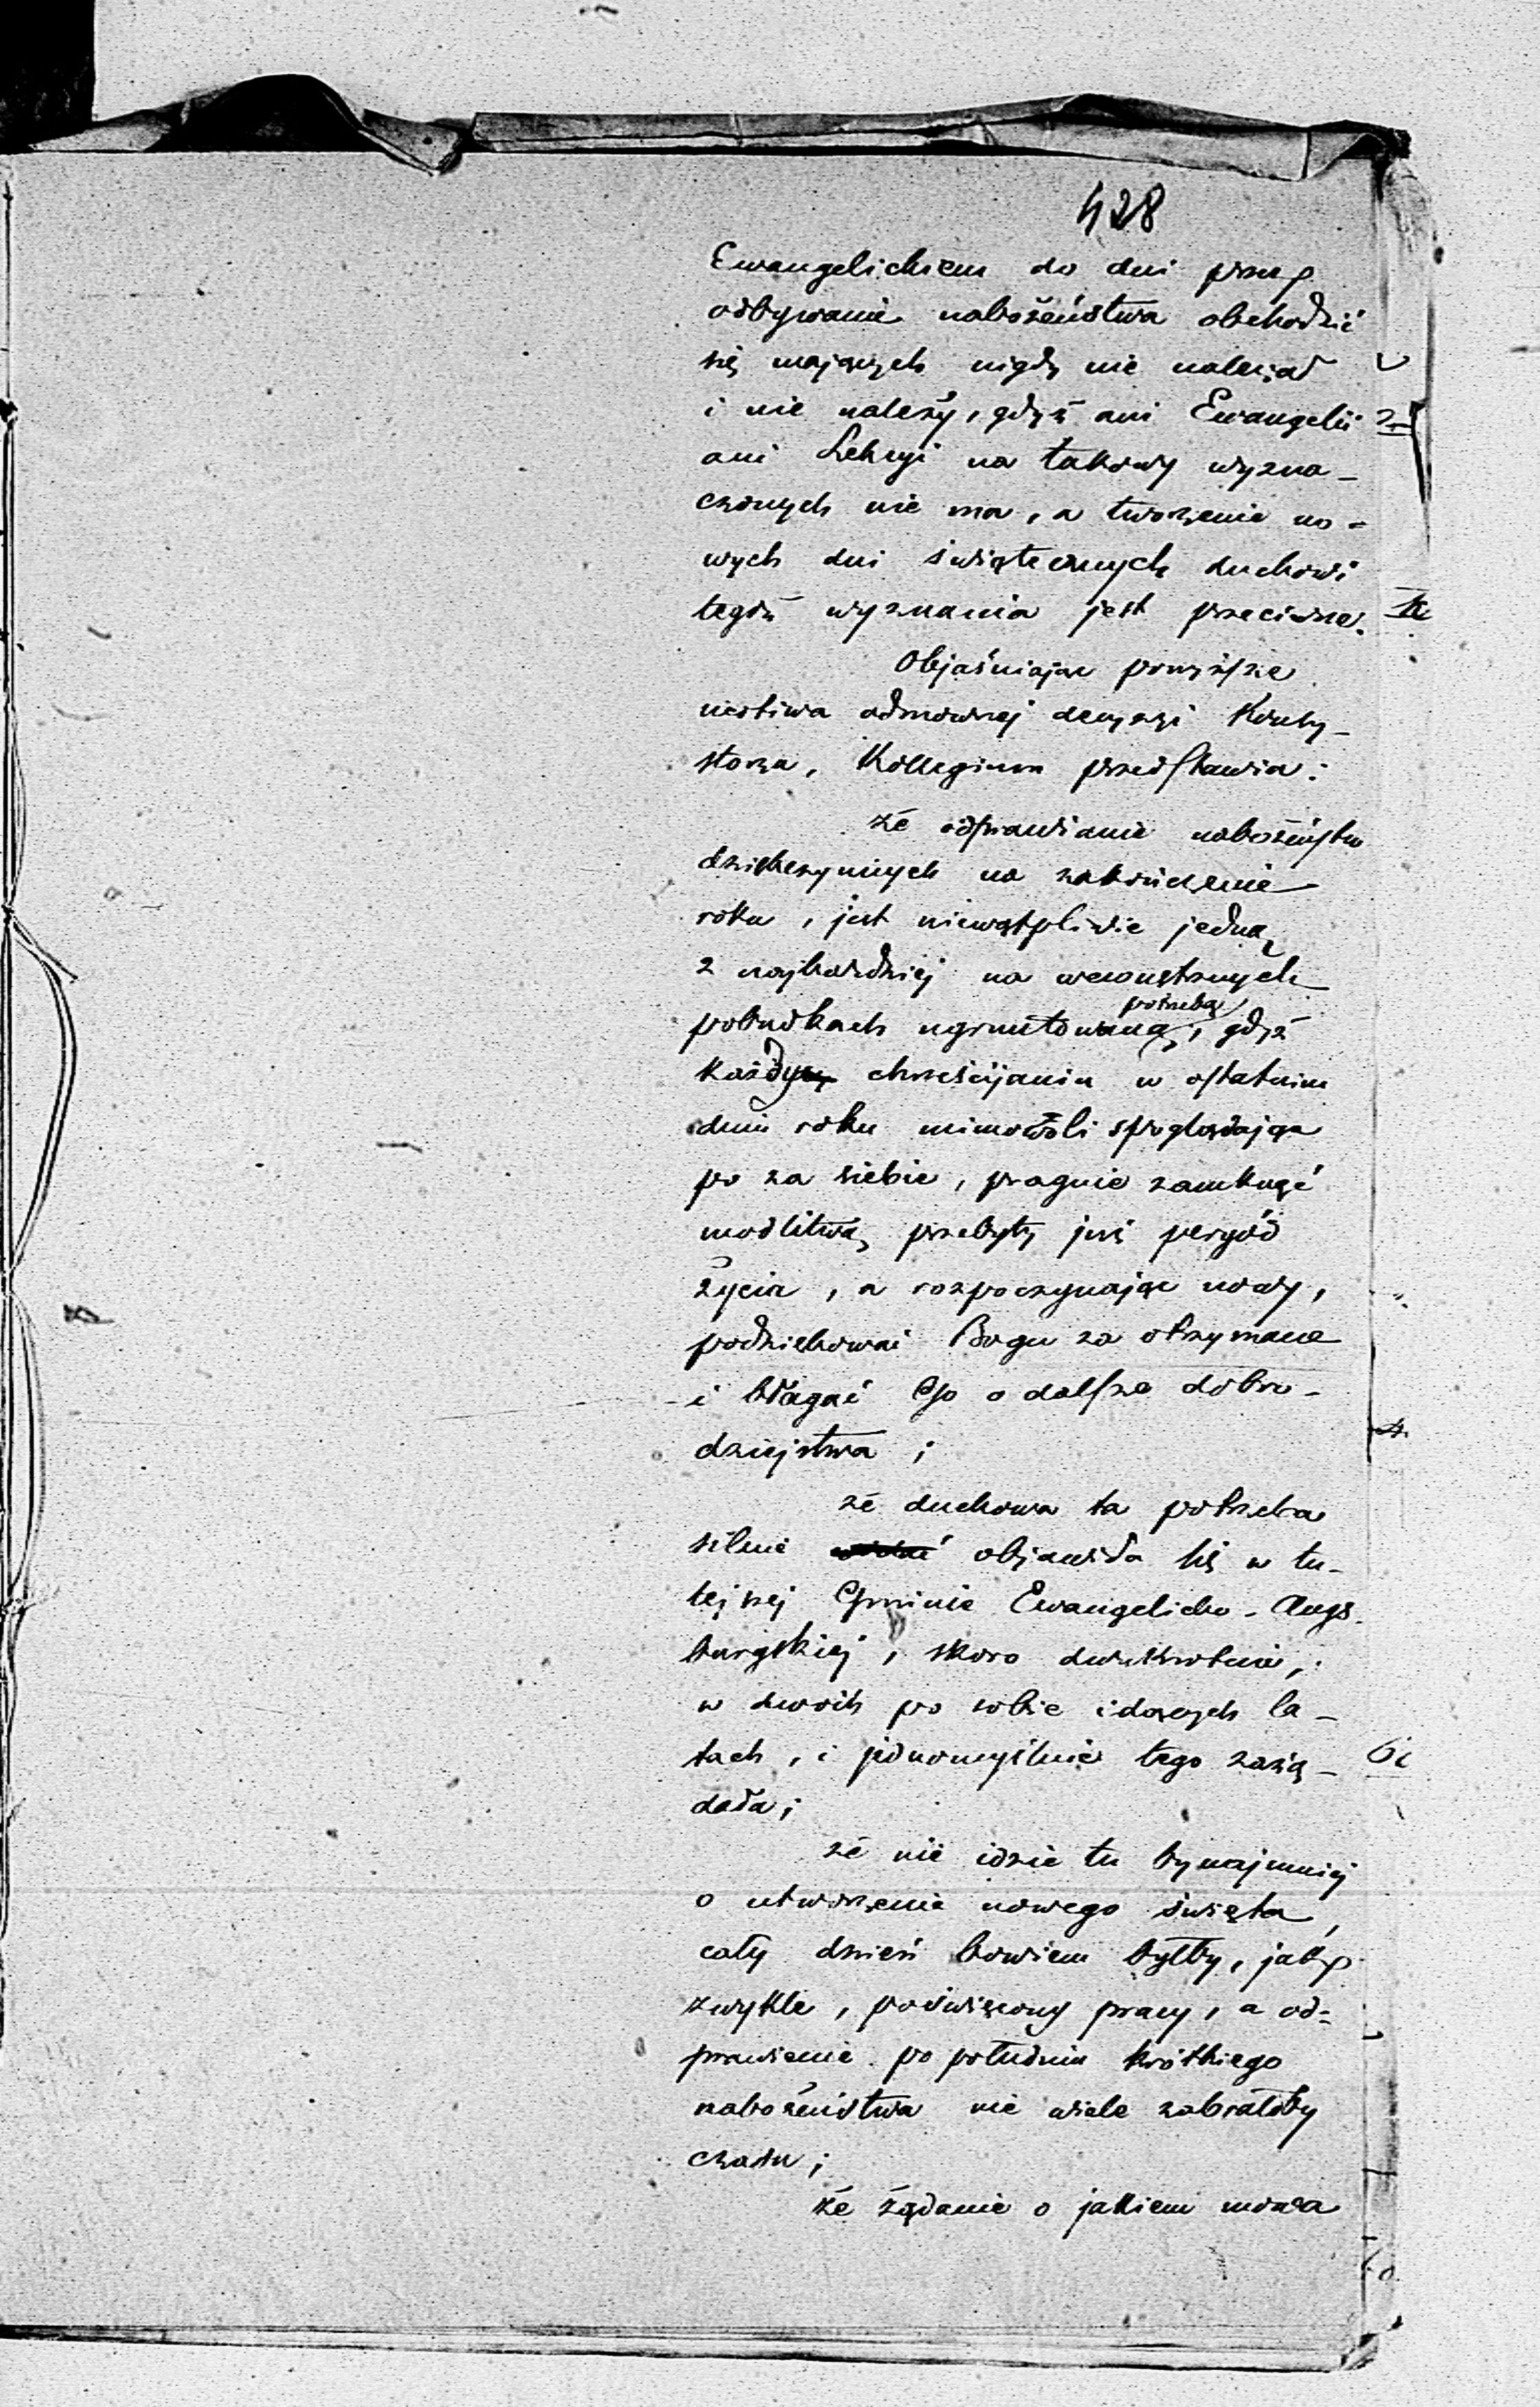 428
Ewangelickiem do dni przez
odbywanie nabożeństwa obchodzić
się mających nigdy nie należał
i nie należy, gdyż ani Ewangelii
ani Lekcyi na takowy wyzna-
czonych nie ma, a tworzenie no-
wych dni świątecznych duchowi
tegoż wyznania jest przeciwne.
Objaśniając powyższe
motiwa odmownej decyzyi Konsy-
storza, Kollegium przedstawia:
że odprawianie nabożeństw
dziękczynnych na zakończenie
roku, jest niewątpliwie jedną
z najbardziej na wewnętrznych
potrzebą
pobudkach ugruntowaną, gdyż
każdy chrześcijanin w ostatnim
dniu roku mimowoli spoglądając
po za siebie, pragnie zamknąć
modlitwą przebyty już peryód
życia, a rozpoczynając nowy,
podziękować Bogu za otrzymane
i błagać Go o dalsze dobro-
dziejstwa;
że duchowa ta potrzeba
silnie objawiła się w tu-
tejszej Gminie Ewangelicko-Augs-
burgskiej, skoro dwukrotnie,
w dwóch po sobie idących la-
tach, i jednomyślnie tego zażą-
dała;
że nie idzie tu bynajmniej
o utworzenie nowego święta,
cały dzień bowiem byłby, jak
zwykle, poświęcony pracy, a od-
prawienie po południu krótkiego
nabożeństwa nie wiele zabrałoby
czasu;
że żądanie o jakiem mowa